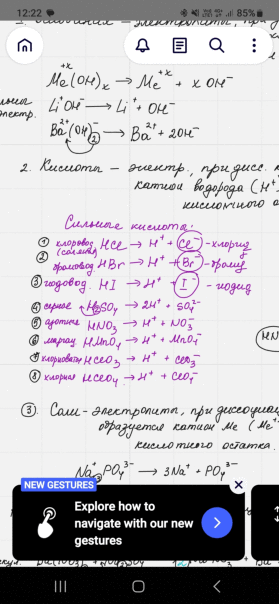 12:22
85%
Me(OH)ₓ → Me⁺ˣ + x OH⁻
электр.
Li⁺OH⁻ → Li⁺ + OH⁻
Ba²⁺(OH)⁻₂ → Ba²⁺ + 2OH⁻
2. Кислоты - электр., при дисс.
катион водорода (H⁺
кислотного о
Сильные кислоты:
① хлоровод. HCl → H⁺ + Cl⁻ - хлорид
(соляная)
② бромовод. HBr → H⁺ + Br⁻ - бромид
③ иодовод. HI → H⁺ + I⁻ - иодид
④ серная H₂SO₄ → 2H⁺ + SO₄²⁻
⑤ азотная HNO₃ → H⁺ + NO₃⁻
⑥ марганц. HMnO₄ → H⁺ + MnO₄⁻
⑦ хлорноват. HClO₃ → H⁺ + ClO₃⁻
⑧ хлорная HClO₄ → H⁺ + ClO₄⁻
③. Соли - электролиты, при диссоциац
образуется катион Me (Me⁺
кислотного остатка.
Na⁺₃PO₄³⁻ → 3Na⁺ + PO₄³⁻
NEW GESTURES
Explore how to
navigate with our new
gestures